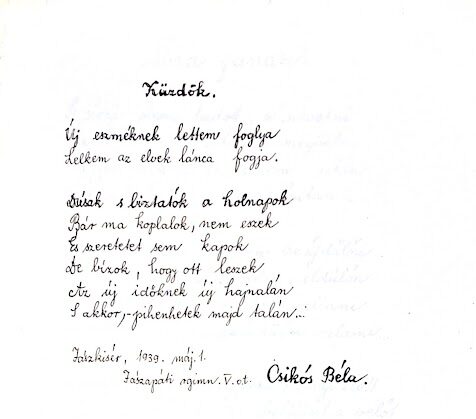 Küzdők.
Új eszméknek lettem foglya
Lelkem az elvek lánca fogja.
Dúsak s biztatók a holnapok
Bár ma koplalok, nem eszek
És szeretetet sem kapok
De bízok, hogy ott leszek
Az új időknek új hajnalán
S akkor,-pihenhetek majd talán...
Jászkisér, 1939. máj. 1.
Jászapáti rgimn. V.o.t. Csikós Béla.